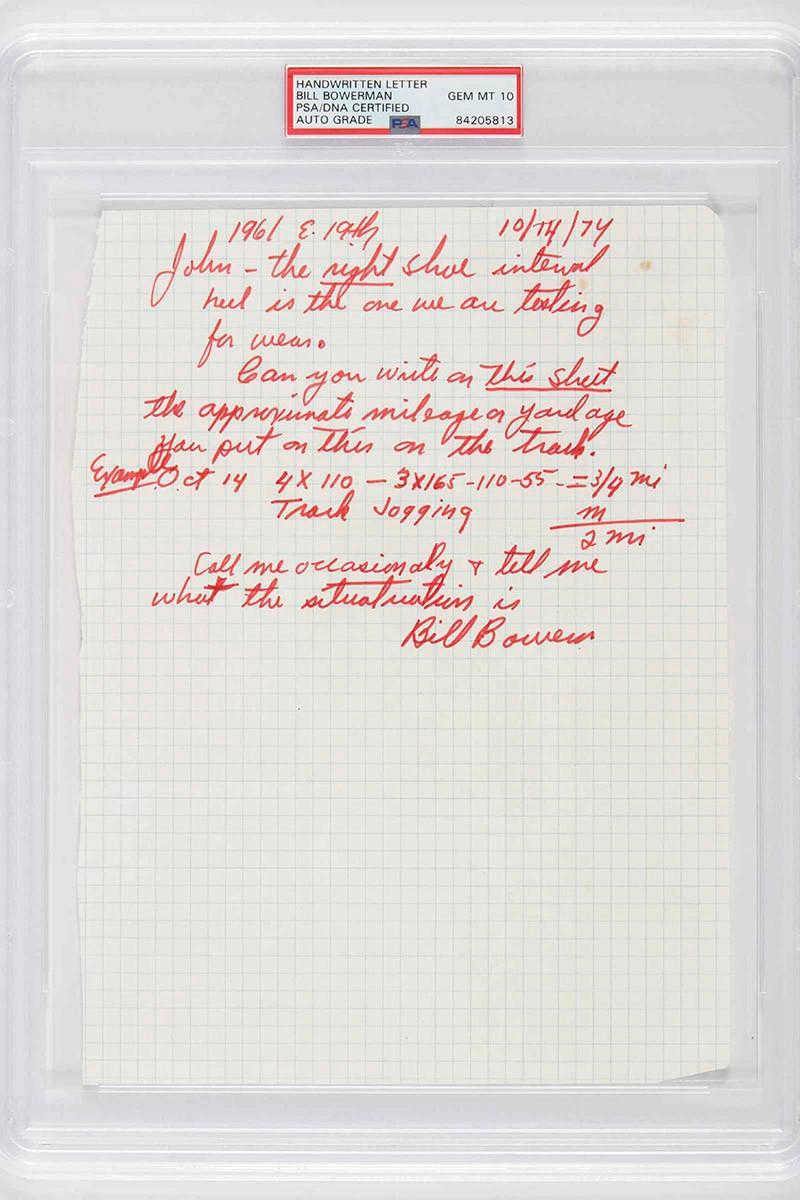 HANDWRITTEN LETTER
BILL BOWERMAN
PSA/DNA CERTIFIED
AUTO GRADE
GEM MT 10
PSA
84205813
1961 E. 19th 10/14/74
John - the right shoe interval
heel is the one we are testing
for wear.
Can you write on this sheet
the approximate mileage or yardage
you put on this on the track.
Example Oct 14 4 X 110 - 3X165-110-55 - = 3/4 mi
Track Jogging m
2 mi
Call me occasionaly & tell me
what the situatuation is
Bill Bowerm